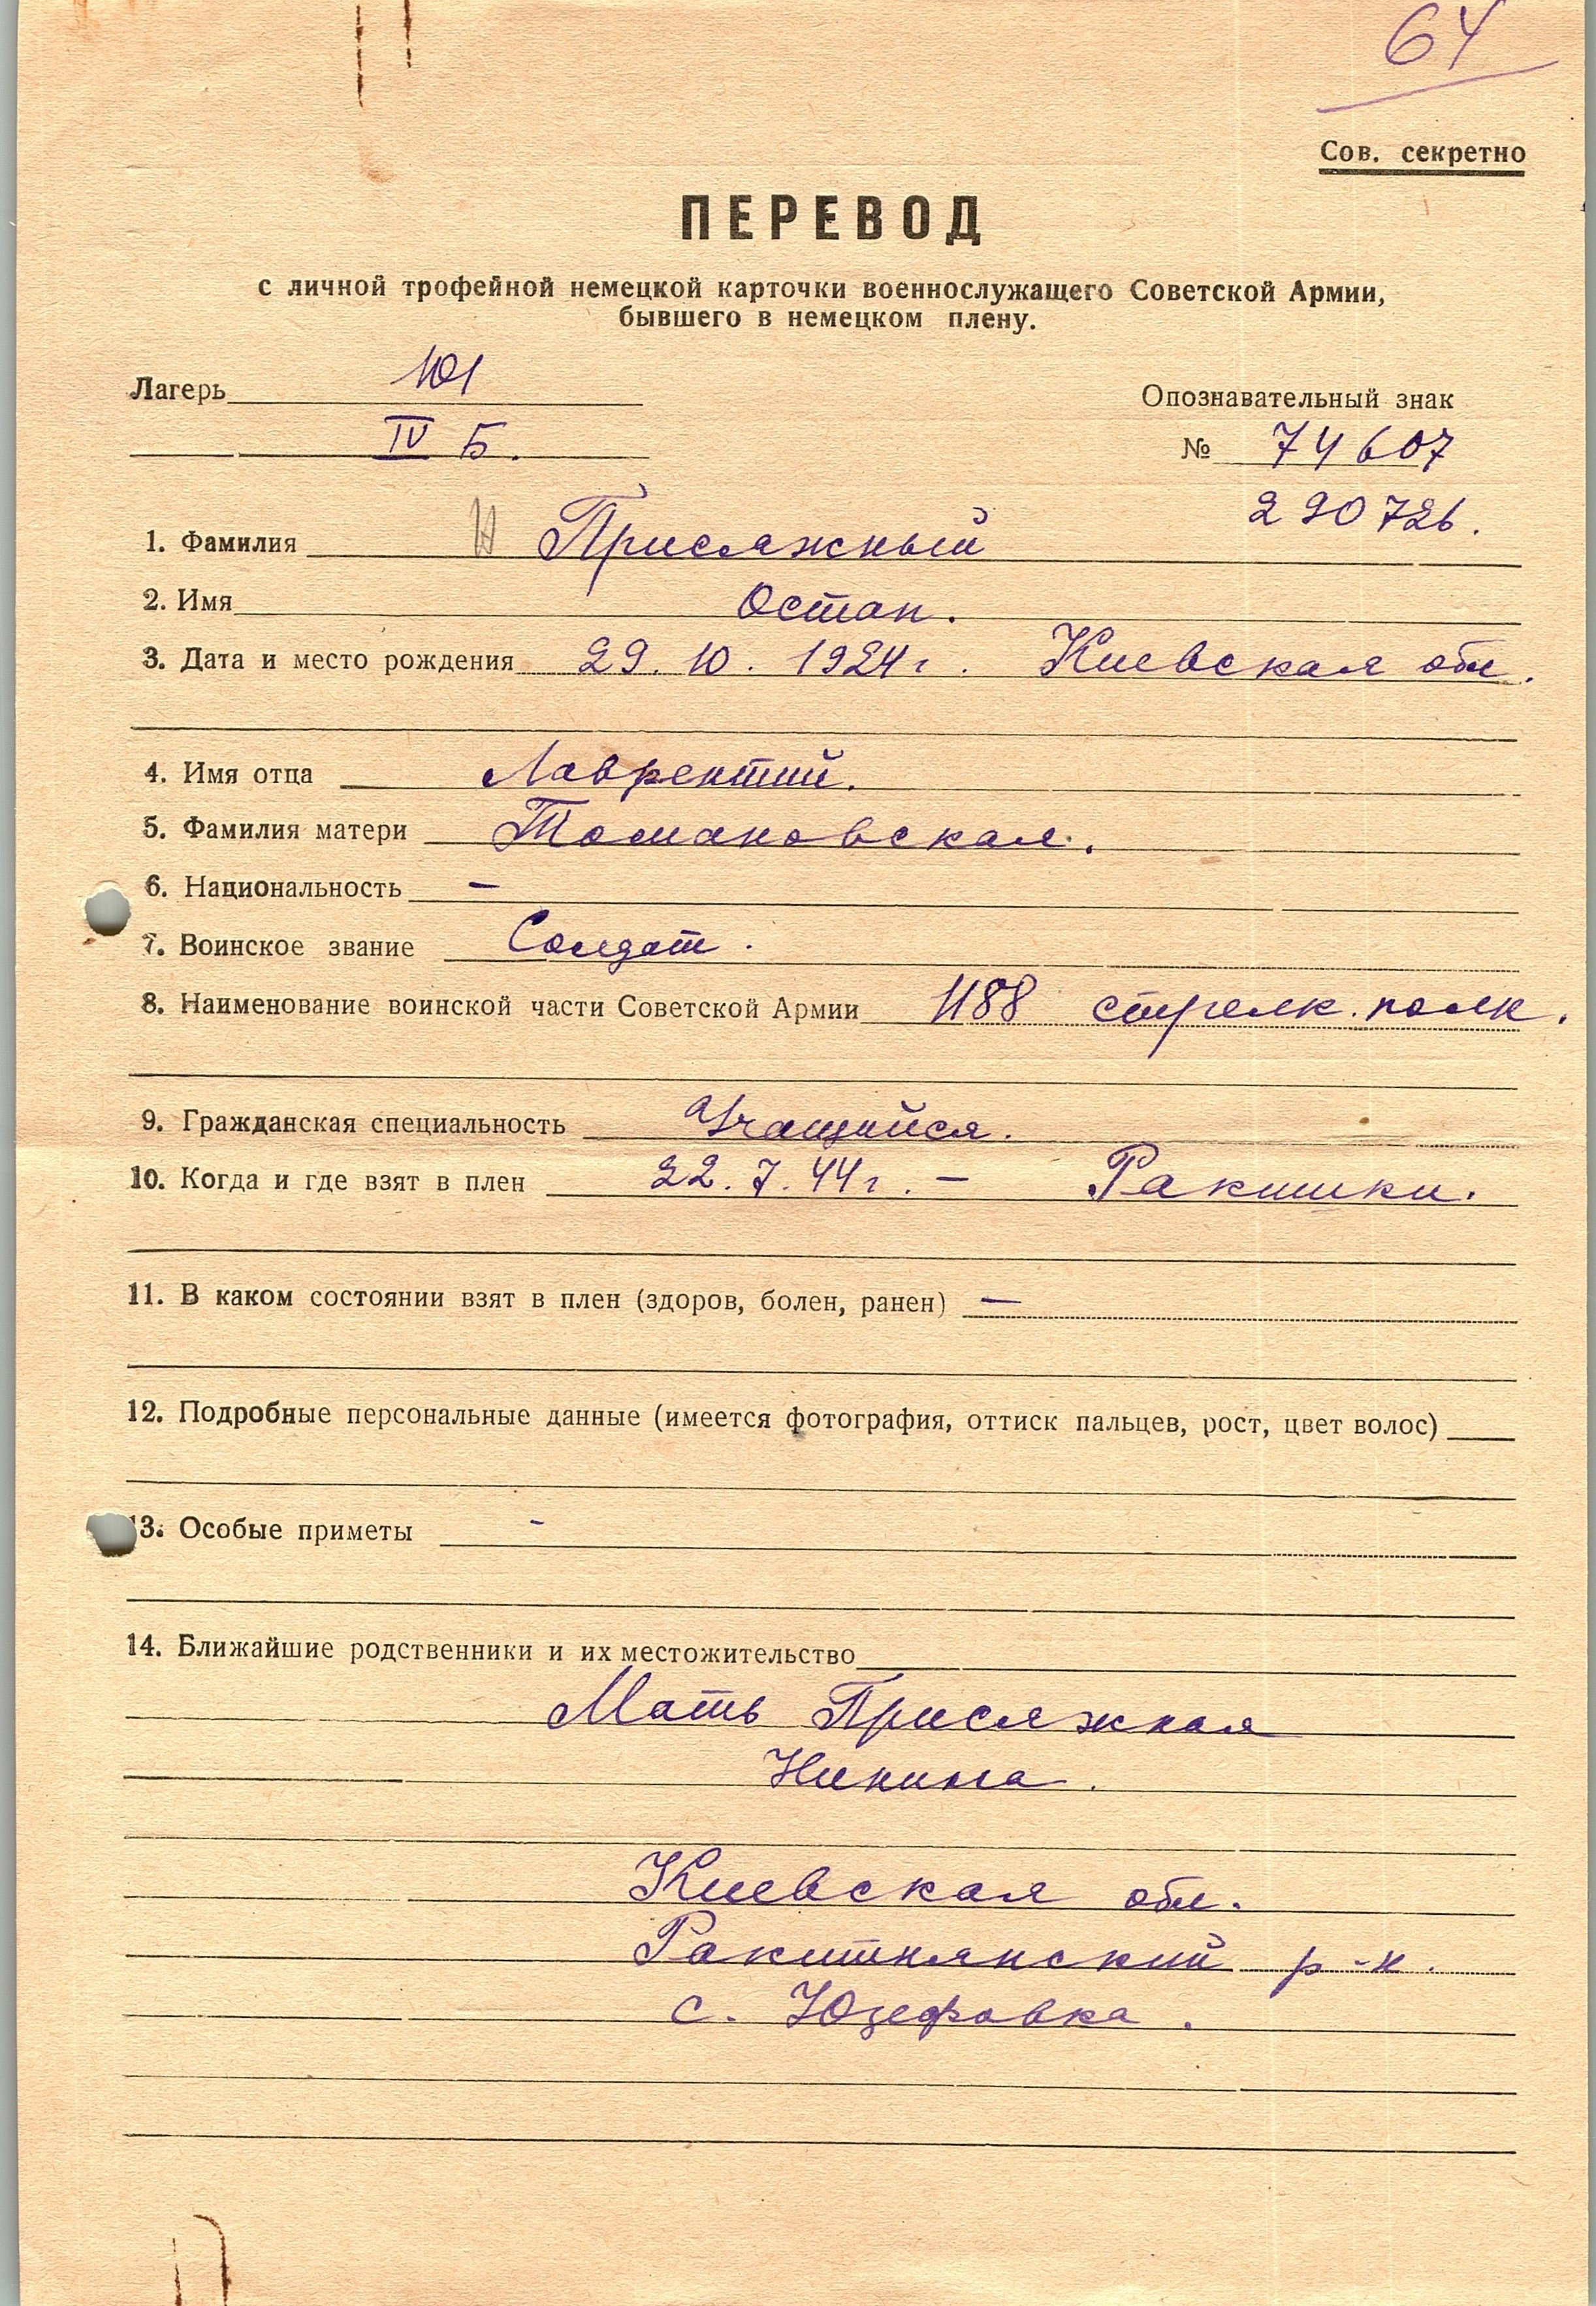 64
Сов. секретно
ПЕРЕВОД
с личной трофейной немецкой карточки военнослужащего Советской Армии,
бывшего в немецком плену.
Лагерь 101
Опознавательный знак
IV Б.
№ 74607
290726.
1. Фамилия Присяжный
2. Имя Остап.
3. Дата и место рождения 29. 10. 1924 г. Киевская обл.
4. Имя отца Лаврентий.
5. Фамилия матери Томановская.
6. Национальность –
7. Воинское звание Солдат.
8. Наименование воинской части Советской Армии 1188 стрелк. полк.
9. Гражданская специальность Учащийся.
10. Когда и где взят в плен 22. 7. 44 г. – Ракишки.
11. В каком состоянии взят в плен (здоров, болен, ранен) —
12. Подробные персональные данные (имеется фотография, оттиск пальцев, рост, цвет волос)
13. Особые приметы -
14. Ближайшие родственники и их местожительство
Мать Присяжная
Киевская обл.
Ракитнянский р-н.
с. Юзефовка.